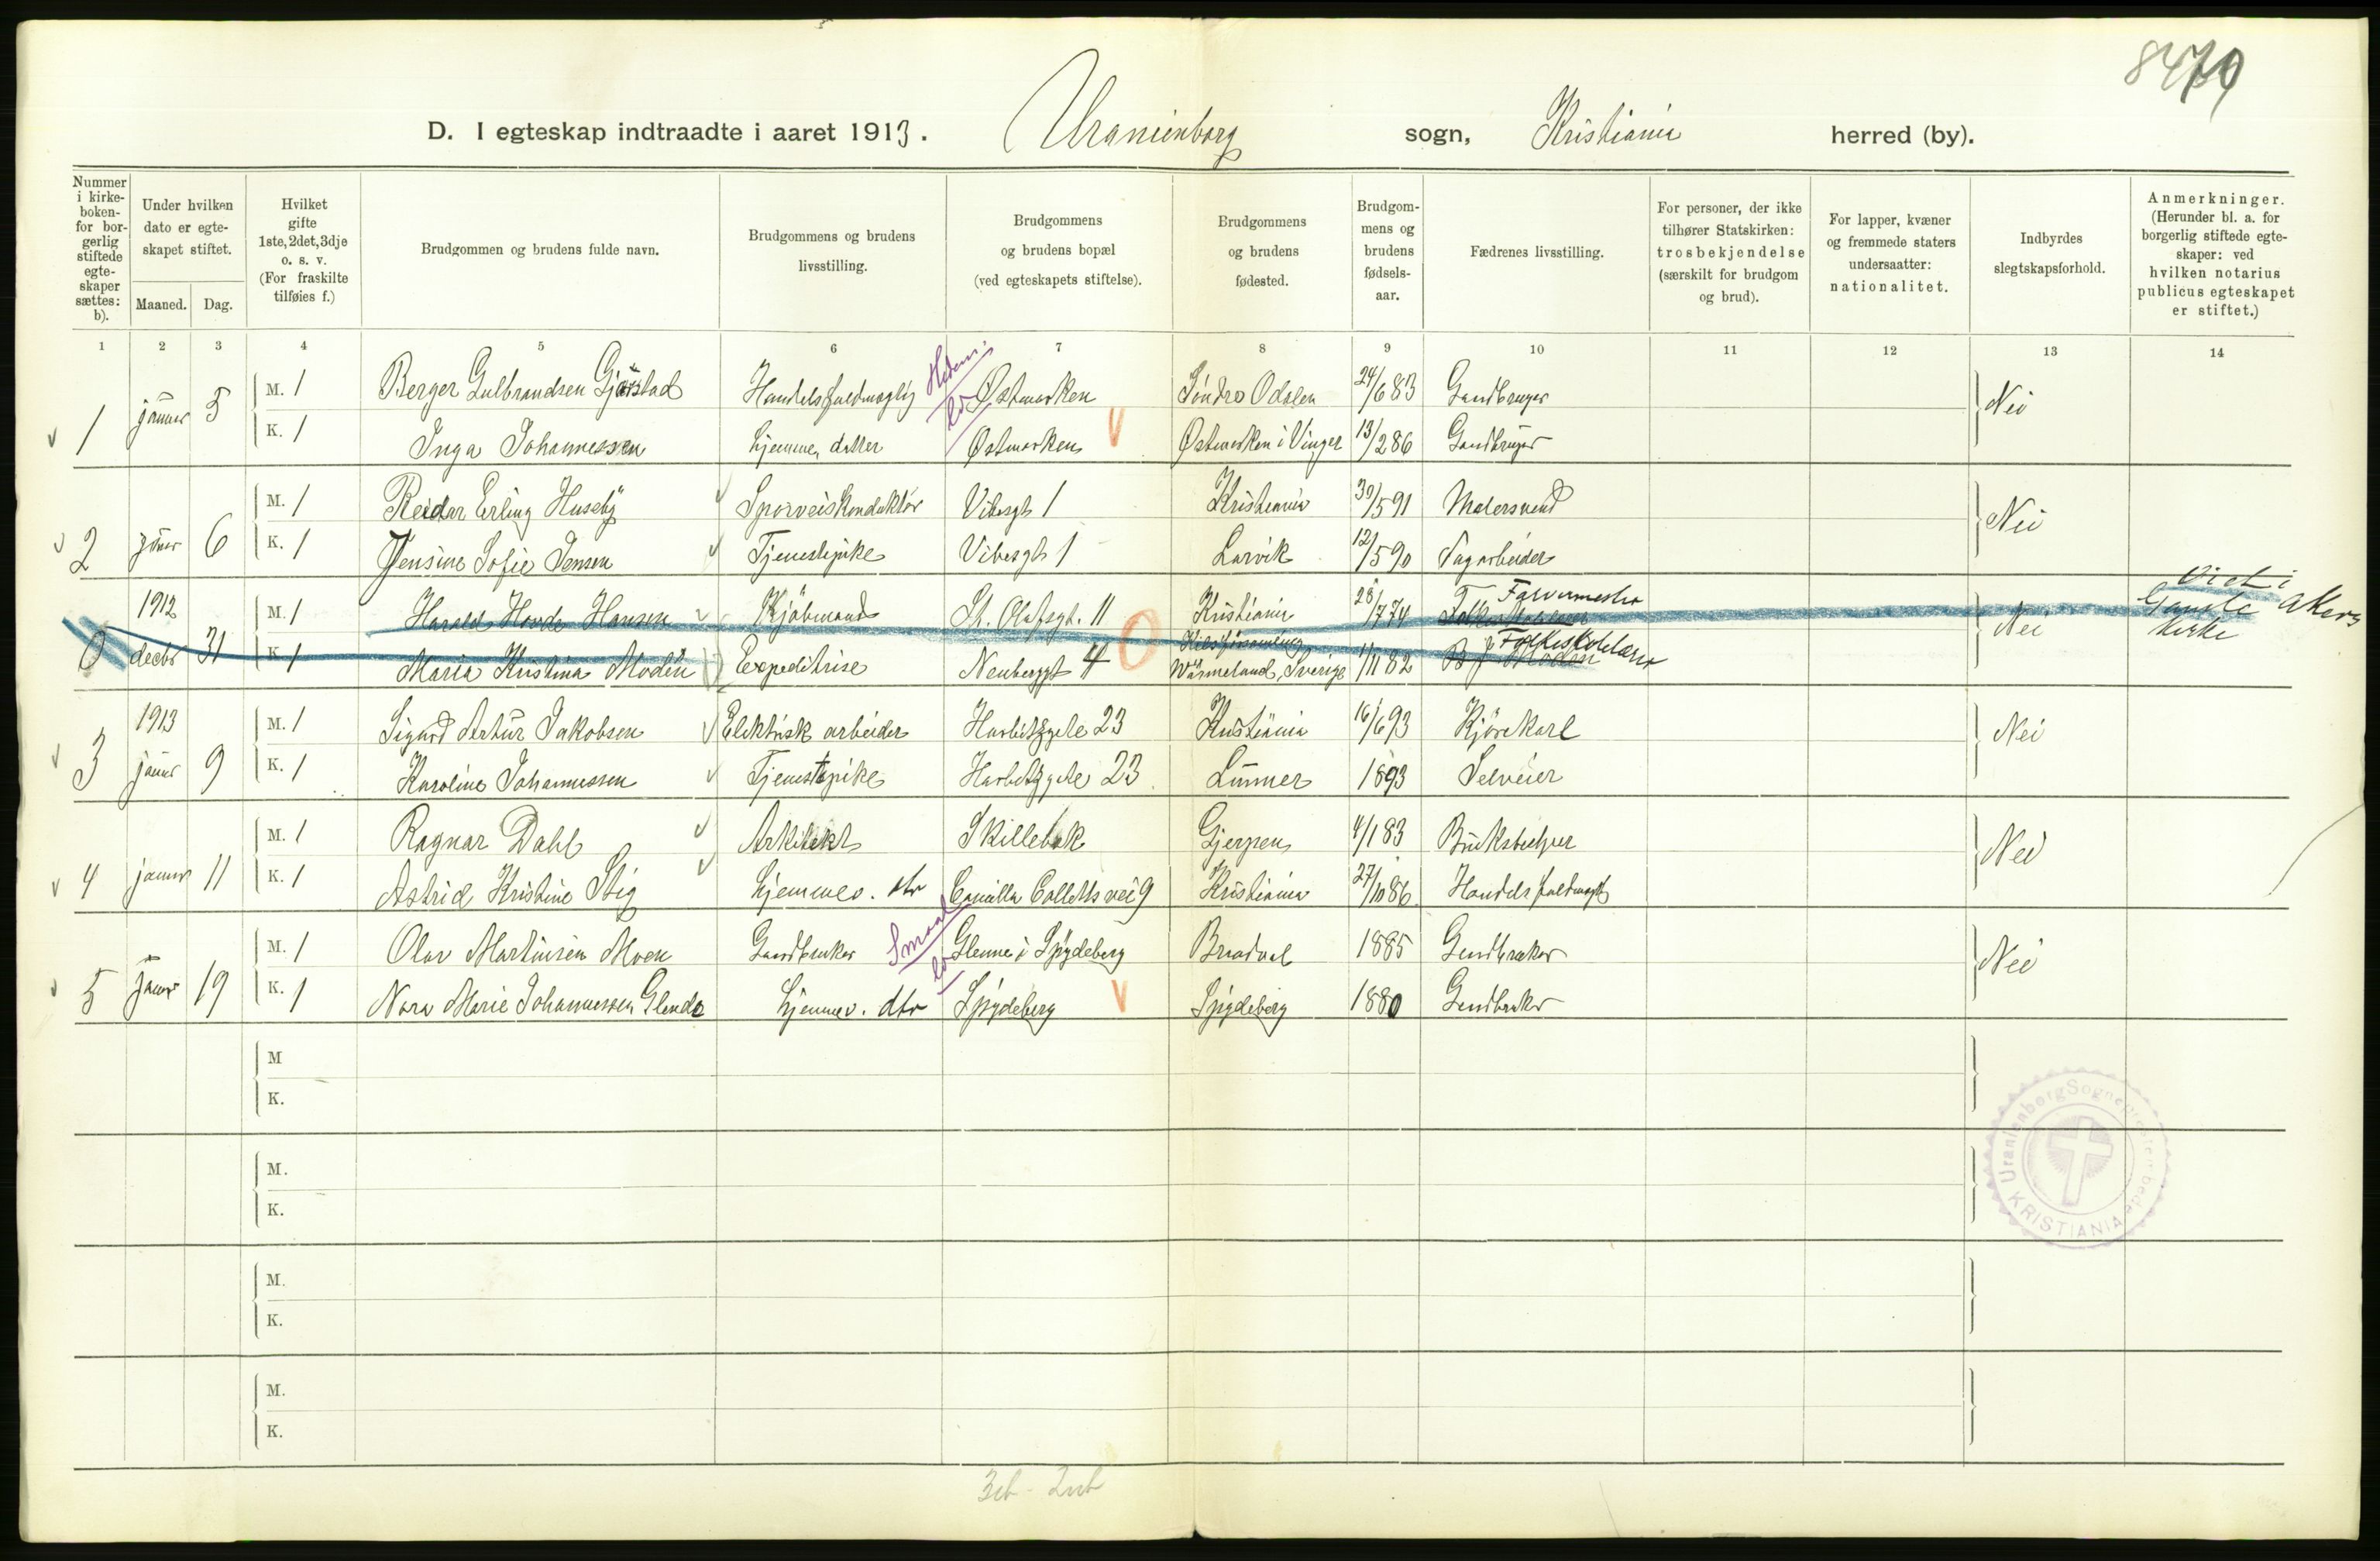 D. I egteskap indtraadte i aaret 1913. Uranienborg sogn, Kristiania herred (by).
Nummer i kirke-boken- for bor-gerlig stiftede egte-skaper sættes: b).
Under hvilken dato er egte-skapet stiftet.
Maaned. Dag.
Hvilket gifte 1ste, 2det, 3dje o. s. v. (For fraskilte tilføies f.)
Brudgommen og brudens fulde navn.
Brudgommens og brudens livsstilling.
Brudgommens og brudens bopæl (ved egteskapets stiftelse).
Brudgommens og brudens fødested.
Brudgom-mens og brudens fødsels-aar.
Fædrenes livsstilling.
For personer, der ikke tilhører Statskirken: trosbekjendelse (særskilt for brudgom og brud).
For lapper, kvæner og fremmede staters undersaatter: nationalitet.
Indbyrdes slegtskapsforhold.
Anmerkninger. (Herunder bl. a. for borgerlig stiftede egte-skaper: ved hvilken notarius publicus egteskapet er stiftet.)
1 2 3 4 5 6 7 8 9 10 11 12 13 14
1 januar 5 M. 1 Berger Gulbrandsen Handelsfuldmægtig Hedem. Østmarken Søndre Odalen 24/6 83 Gaardbruger Nei
K. 1 Inga Johannessen hjemme, datter Østmarken Østmarken i Vinger 13/2 86 Gaardbruger
2 januar 6 M. 1 Reidar Erling Huseby Sporveiskonduktør Vibesgt 1 Kristiania 30/5 91 Malersvend Nei
K. 1 Jensine Sofie Jensen Tjenestepike Vibesgt 1 Larvik 12/5 90 Sagarbeider
0 1912 decbr 31 M. 1 Harald Hansen Kjøbmand St. Olafsgt. 11 Kristiania 28/7 74 Farvermester Nei Viet i Gamle Akers Kirke
K. 1 Maria Kristina Modén Expeditrise Neuberggt 4 Wärmeland, Sverige 1/11 82 Folkeskolelærer
3 1913 januar 9 M. 1 Sigurd Artur Jakobsen Elektrisk arbeider Harbitzgate 23 Kristiania 16/6 93 Kjørekarl Nei
K. 1 Karoline Johannessen Tjenestepike Harbitzgate 23 Lunner 1893 Selveier
4 januar 11 M. 1 Ragnar Dahl Arkitekt Skillebæk Gjerpen 4/1 83 Bruksbestyrer Nei
K. 1 Astrid Kristine Stig hjemmev. dtr Camilla Colletts vei 9 Kristiania 27/10 86 Handelsfuldmægt
5 januar 19 M. 1 Olav Martinsen Moen Gaardbruker Smaal Glenne i Spydeberg Braadval 1885 Gaardbruker Nei
K. 1 Nora Marie Johannessen hjemmev. dtr Spydeberg Spydeberg 1880 Gaardbruker
M
K.
M.
K.
M.
K.
M.
K.
Uranienborg Sogneprestembede KRISTIANIA